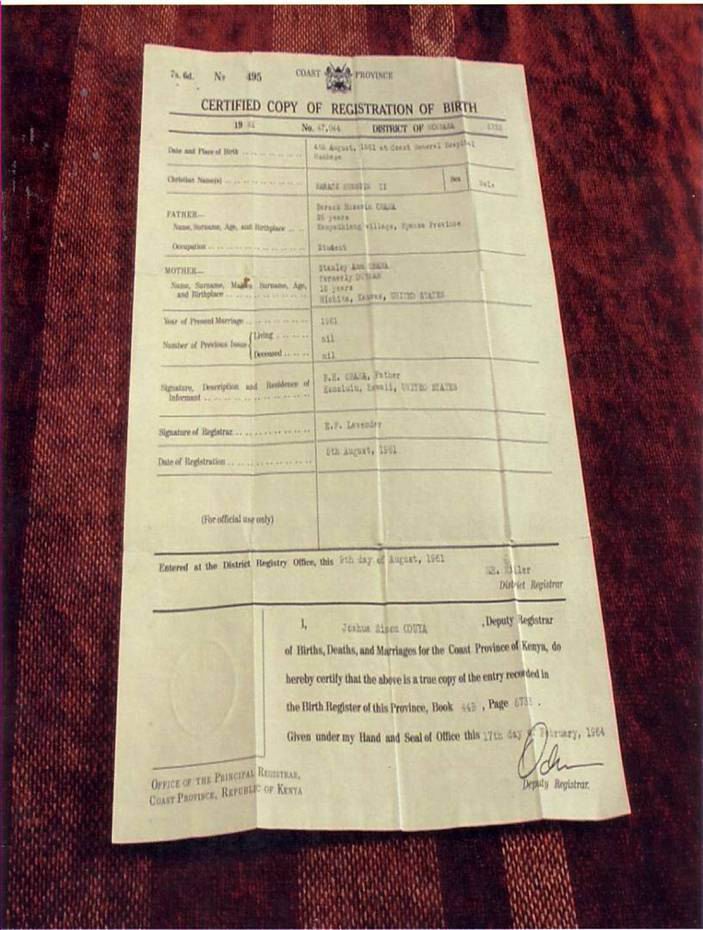 7s. 6d. Nº 495 COAST PROVINCE
CERTIFIED COPY OF REGISTRATION OF BIRTH
19 61 No. 47,044 DISTRICT OF MOMBASA
Date and Place of Birth 4th August, 1961 at Coast General Hospital
Mombasa
Christian Name(s) BARACK HUSSEIN II Sex Male
FATHER—
Name, Surname, Age, and Birthplace Barack Hussein OBAMA
26 years
village, Nyanza Province
Occupation Student
MOTHER—
Name, Surname, Maiden Surname, Age,
and Birthplace Stanley Ann OBAMA
formerly DUNHAM
18 years
Wichita, Kansas, UNITED STATES
Year of Present Marriage 1961
Number of Previous Issue { Living nil
Deceased nil
Signature, Description and Residence of
Informant B.H. OBAMA, Father
Honolulu, Hawaii, UNITED STATES
Signature of Registrar E.F. Lavender
Date of Registration 5th August, 1961
(For official use only)
Entered at the District Registry Office, this 9th day of August, 1961
Miller
District Registrar
I, Joshua Simon ODUYA , Deputy Registrar
of Births, Deaths, and Marriages for the Coast Province of Kenya, do
hereby certify that the above is a true copy of the entry recorded in
the Birth Register of this Province, Book 44B , Page
Given under my Hand and Seal of Office this 17th day of February, 1964
Deputy Registrar.
OFFICE OF THE PRINCIPAL REGISTRAR,
COAST PROVINCE, REPUBLIC OF KENYA